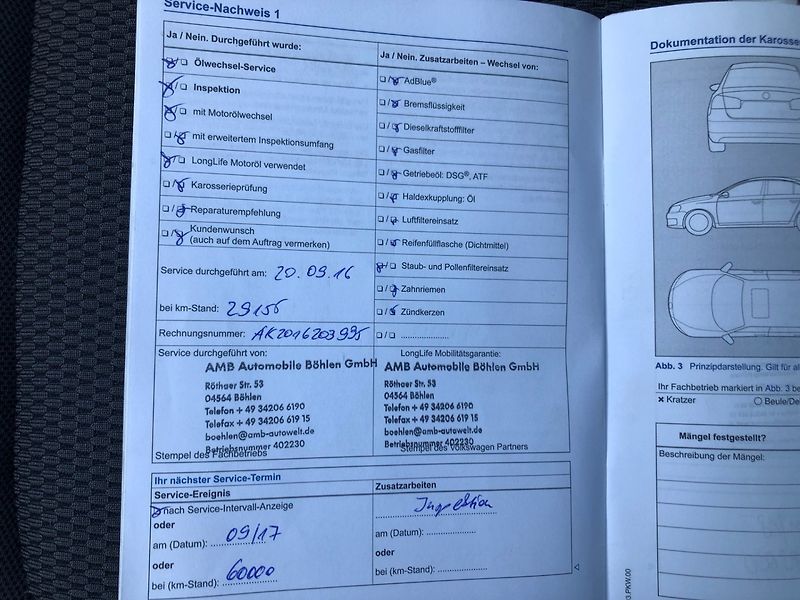 Service-Nachweis 1
Ja / Nein. Durchgeführt wurde:
Ölwechsel-Service
Inspektion
mit Motorölwechsel
mit erweitertem Inspektionsumfang
LongLife Motoröl verwendet
Karosserieprüfung
Reparaturempfehlung
Kundenwunsch
(auch auf dem Auftrag vermerken)
Ja / Nein. Zusatzarbeiten – Wechsel von:
AdBlue®
Bremsflüssigkeit
Dieselkraftstofffilter
Gasfilter
Getriebeöl: DSG®, ATF
Haldexkupplung: Öl
Luftfiltereinsatz
Reifenfüllflasche (Dichtmittel)
Staub- und Pollenfiltereinsatz
Zahnriemen
Zündkerzen
Service durchgeführt am: 20.09.16
bei km-Stand: 29155
Rechnungsnummer: AK2016203995
Service durchgeführt von:
AMB Automobile Böhlen GmbH
Röthaer Str. 53
04564 Böhlen
Telefon + 49 34206 6190
Telefax + 49 34206 619 15
boehlen@amb-autowelt.de
Betriebsnummer 402230
Stempel des Fachbetriebs
LongLife Mobilitätsgarantie:
AMB Automobile Böhlen GmbH
Röthaer Str. 53
04564 Böhlen
Telefon + 49 34206 6190
Telefax + 49 34206 619 15
boehlen@amb-autowelt.de
Betriebsnummer 402230
Stempel des Volkswagen Partners
Ihr nächster Service-Termin
Service-Ereignis
nach Service-Intervall-Anzeige
oder
am (Datum): 09/17
oder
bei (km-Stand): 60000
Zusatzarbeiten
Inspektion
am (Datum):
oder
bei (km-Stand):
Dokumentation der Karosse
Abb. 3 Prinzipdarstellung. Gilt für al
Ihr Fachbetrieb markiert in Abb. 3 be
× Kratzer
Beule/De
Mängel festgestellt?
Beschreibung der Mängel:
3.PKW.00